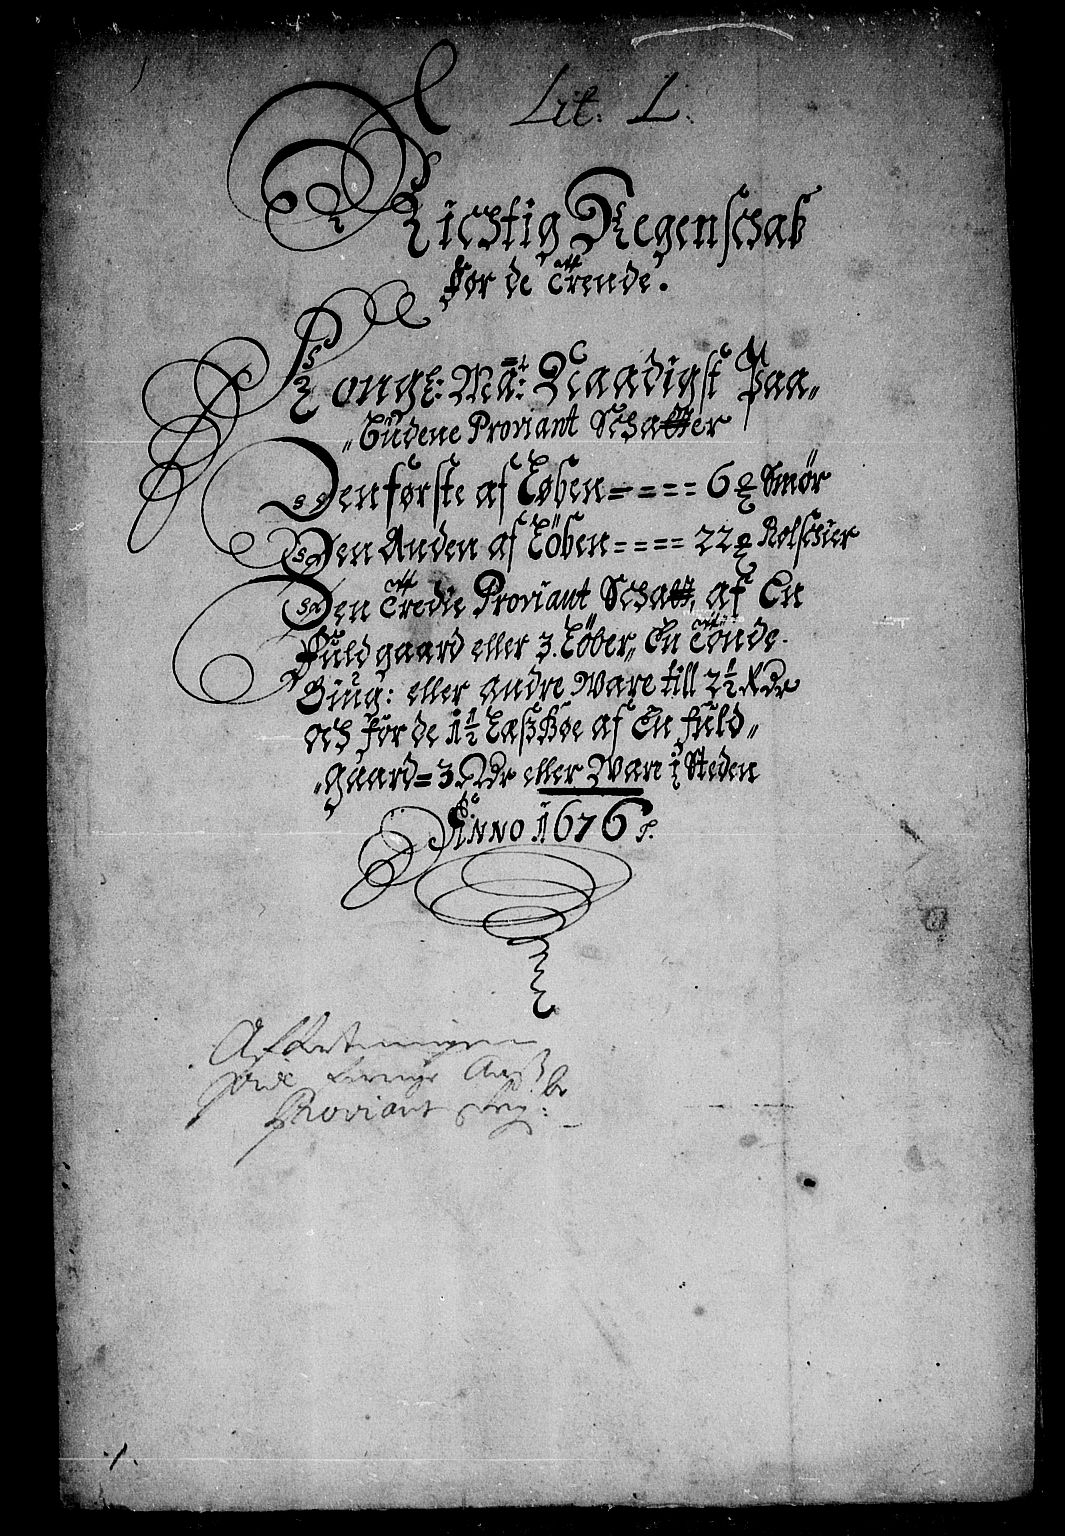 Lit: L:
Richtig Regenschab
for de Trende.
Kongl: Ma:tt Naadigst Paa„
„büdene Proviant Schatter
Den første af Løben==== 6 ℔ Smör
Den Anden af Löben==== 22 ℔ Rolschier
Den Tredie Proviant Schatt, af En
Fuld gaard eller 3. Löber„ En Tönde
Biug: eller andre Ware till 2½ Rdr
och for de 1½ Laß Høe af En fuld„
„gaard= 3 Rdr eller Ware i Steden
Anno 1676
Proviant
1.